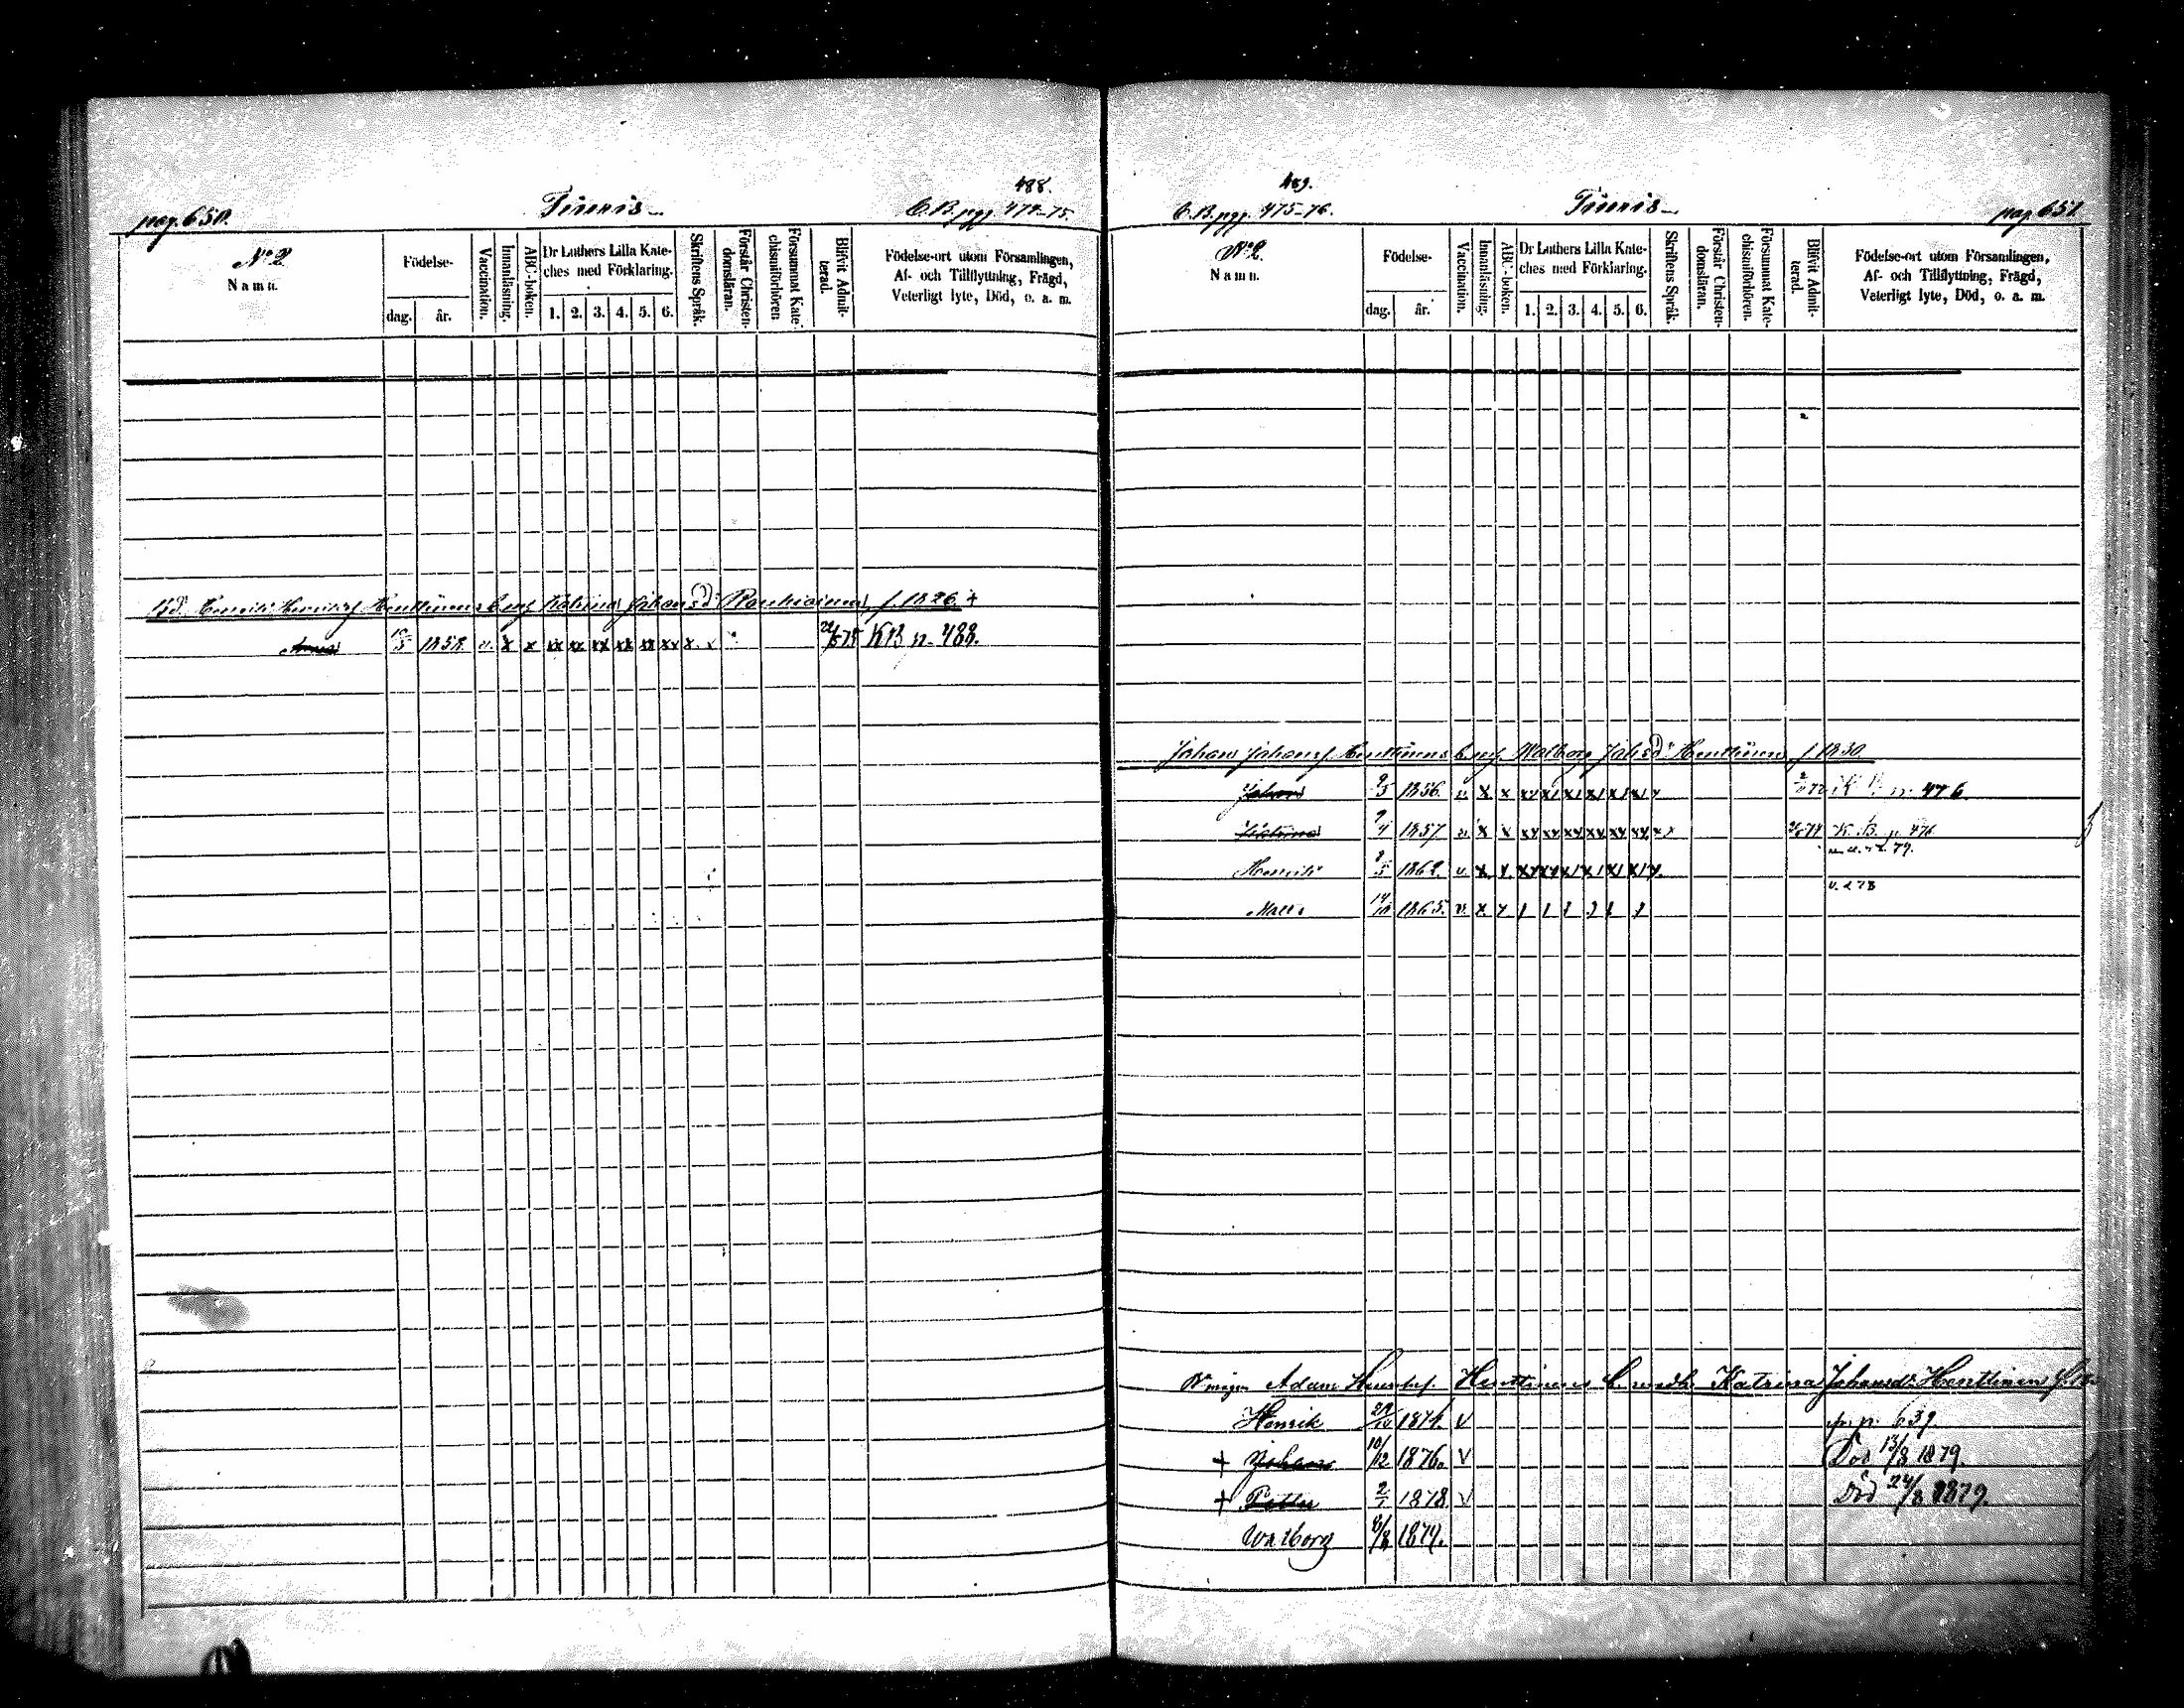 488.
pag. 650. C.B. pgg. 474-75.
No 2
Namn.
Födelse-
dag. år.
Vaccination.
Innanläsning.
ABC-boken.
Dr Luthers Lilla Kate-
ches med Förklaring.
1. 2. 3. 4. 5. 6.
Skriftens Språk.
Förstår Christen-
domsläran.
Försummat Kate-
chismiförhören
Blifvit Admit-
terad.
Födelse-ort utom Församlingen,
Af- och Tillflyttning, Frägd,
Veterligt lyte, Död, o. a. m.
Henttinens Katrina Johansd: f. 1826 +
Anna 1858. v. x x xx xx xx xx xx xx x. x KB p. 488.
489.
C.B. pgg. 475-76. pag 651
No 2.
Namn.
Födelse-
dag. år.
Vaccination.
Innanläsning.
ABC-boken.
Dr Luthers Lilla Kate-
ches med Förklaring.
1. 2. 3. 4. 5. 6.
Skriftens Språk.
Förstår Christen-
domsläran.
Försummat Kate-
chismiförhören.
Blifvit Admit-
terad.
Födelse-ort utom Församlingen,
Af- och Tillflyttning, Frägd,
Veterligt lyte, Död, o. a. m.
Johan Johansf. Henttinens Walborg Johsd: Henttinen f. 1830.
Johan 1856. v. x x 476.
Katrina 9/4 1857 v. x x K.B. p. 476
Henrik 1862. v. x x
Matts 1865. v. x
Adam Henriksf. Henttinens Katrina Johansd: Henttinen
Henrik 1874. v 639
+ Johan 10/12 1876. v Död 13/8 1879.
+ Petter 2/1 1878 v Död 24/8 1879.
Walborg 1879.